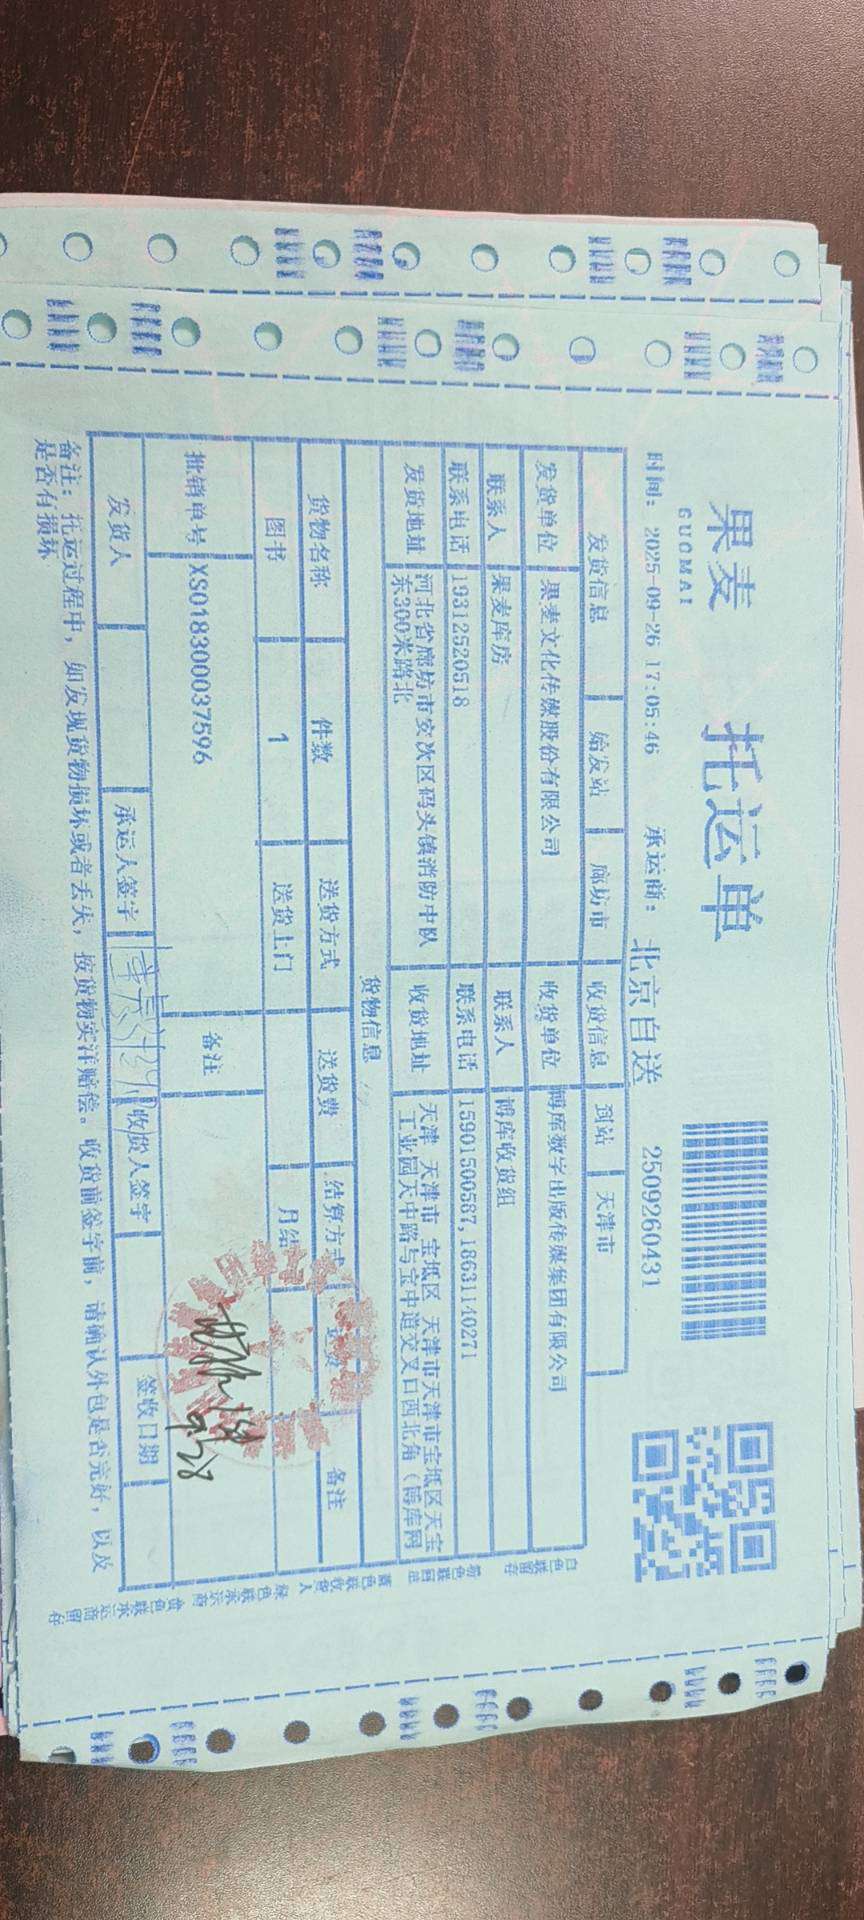 果麦
GUOMAI
托运单
时间: 2025-09-26 17:05:46 承运商: 北京自送 2509260431
发货信息 始发站 廊坊市 收货信息 到站 天津市
发货单位 果麦文化传媒股份有限公司 收货单位 博库数字出版传媒集团有限公司
联系人 果麦库房 联系人 博库收货组
联系电话 19312520518 联系电话 15901500587,18631140271
发货地址 河北省廊坊市安次区码头镇消防中队东300米路北 收货地址 天津 天津市 宝坻区 天津市天津市宝坻区天宝工业园天中路与宝中道交叉口西北角(博库网
货物信息
货物名称 件数 送货方式 送货费 结算方式 备注
图书 1 送货上门 月结
批销单号 XS018300037596 备注
发货人 承运人签字 收货人签字 签收日期
9.28
备注: 托运过程中, 如发现货物损坏或者丢失, 按货物实洋赔偿。收货前签字前, 请确认外包是否完好, 以及
是否有损坏
白色联留存
粉色联回总
蓝色联收货人
绿色联承运商
黄色联承运商留存